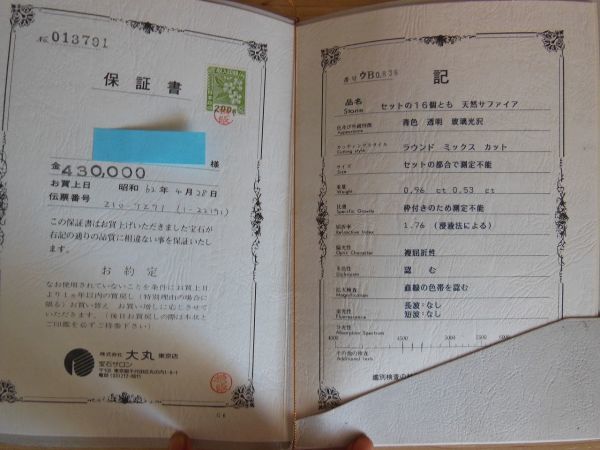 № 013791
保証書
200円
様
金 430,000
お買上日 昭和 62年 4月 28日
伝票番号 210-9291 (1-22191)
この保証書はお買上げいただきました宝石が
右記の通りの品質に相違ない事を保証いたし
ます。
お約定
なお使用されていないことを条件にお買上日
より1ヵ年以内の買戻し(特別理由の場合に
限る)お買い替え、お買い増しに応じさせて
いただきます。(後日お買戻しの際は本状と
ご印鑑を必ずご持参下さい)
株式会社 大丸 東京店
宝石サロン
電話 (03)212-8011
番号 ウB0836
記
品名 セットの16個とも 天然サファイア
Stone
青色 透明 玻璃光沢
Appearance
カッティングスタイル ラウンド ミックス カット
Cutting style
サイズ セットの都合で測定不能
Size
重量 0.96 ct 0.53 ct
Weight
比重 枠付きのため測定不能
Specific Gravity
屈折率 1.76 (浸液法による)
Refractive Index
偏光性 複屈折性
Optic Character
多色性 認 む
Dichroism
拡大検査 直線の色帯を認む
Magnification
蛍光性 長波:なし
Fluorescence 短波:なし
分光性
Absorption Spectrum
4000 4500 5000 5500
その他の検査
Additional tests
鑑別検査の